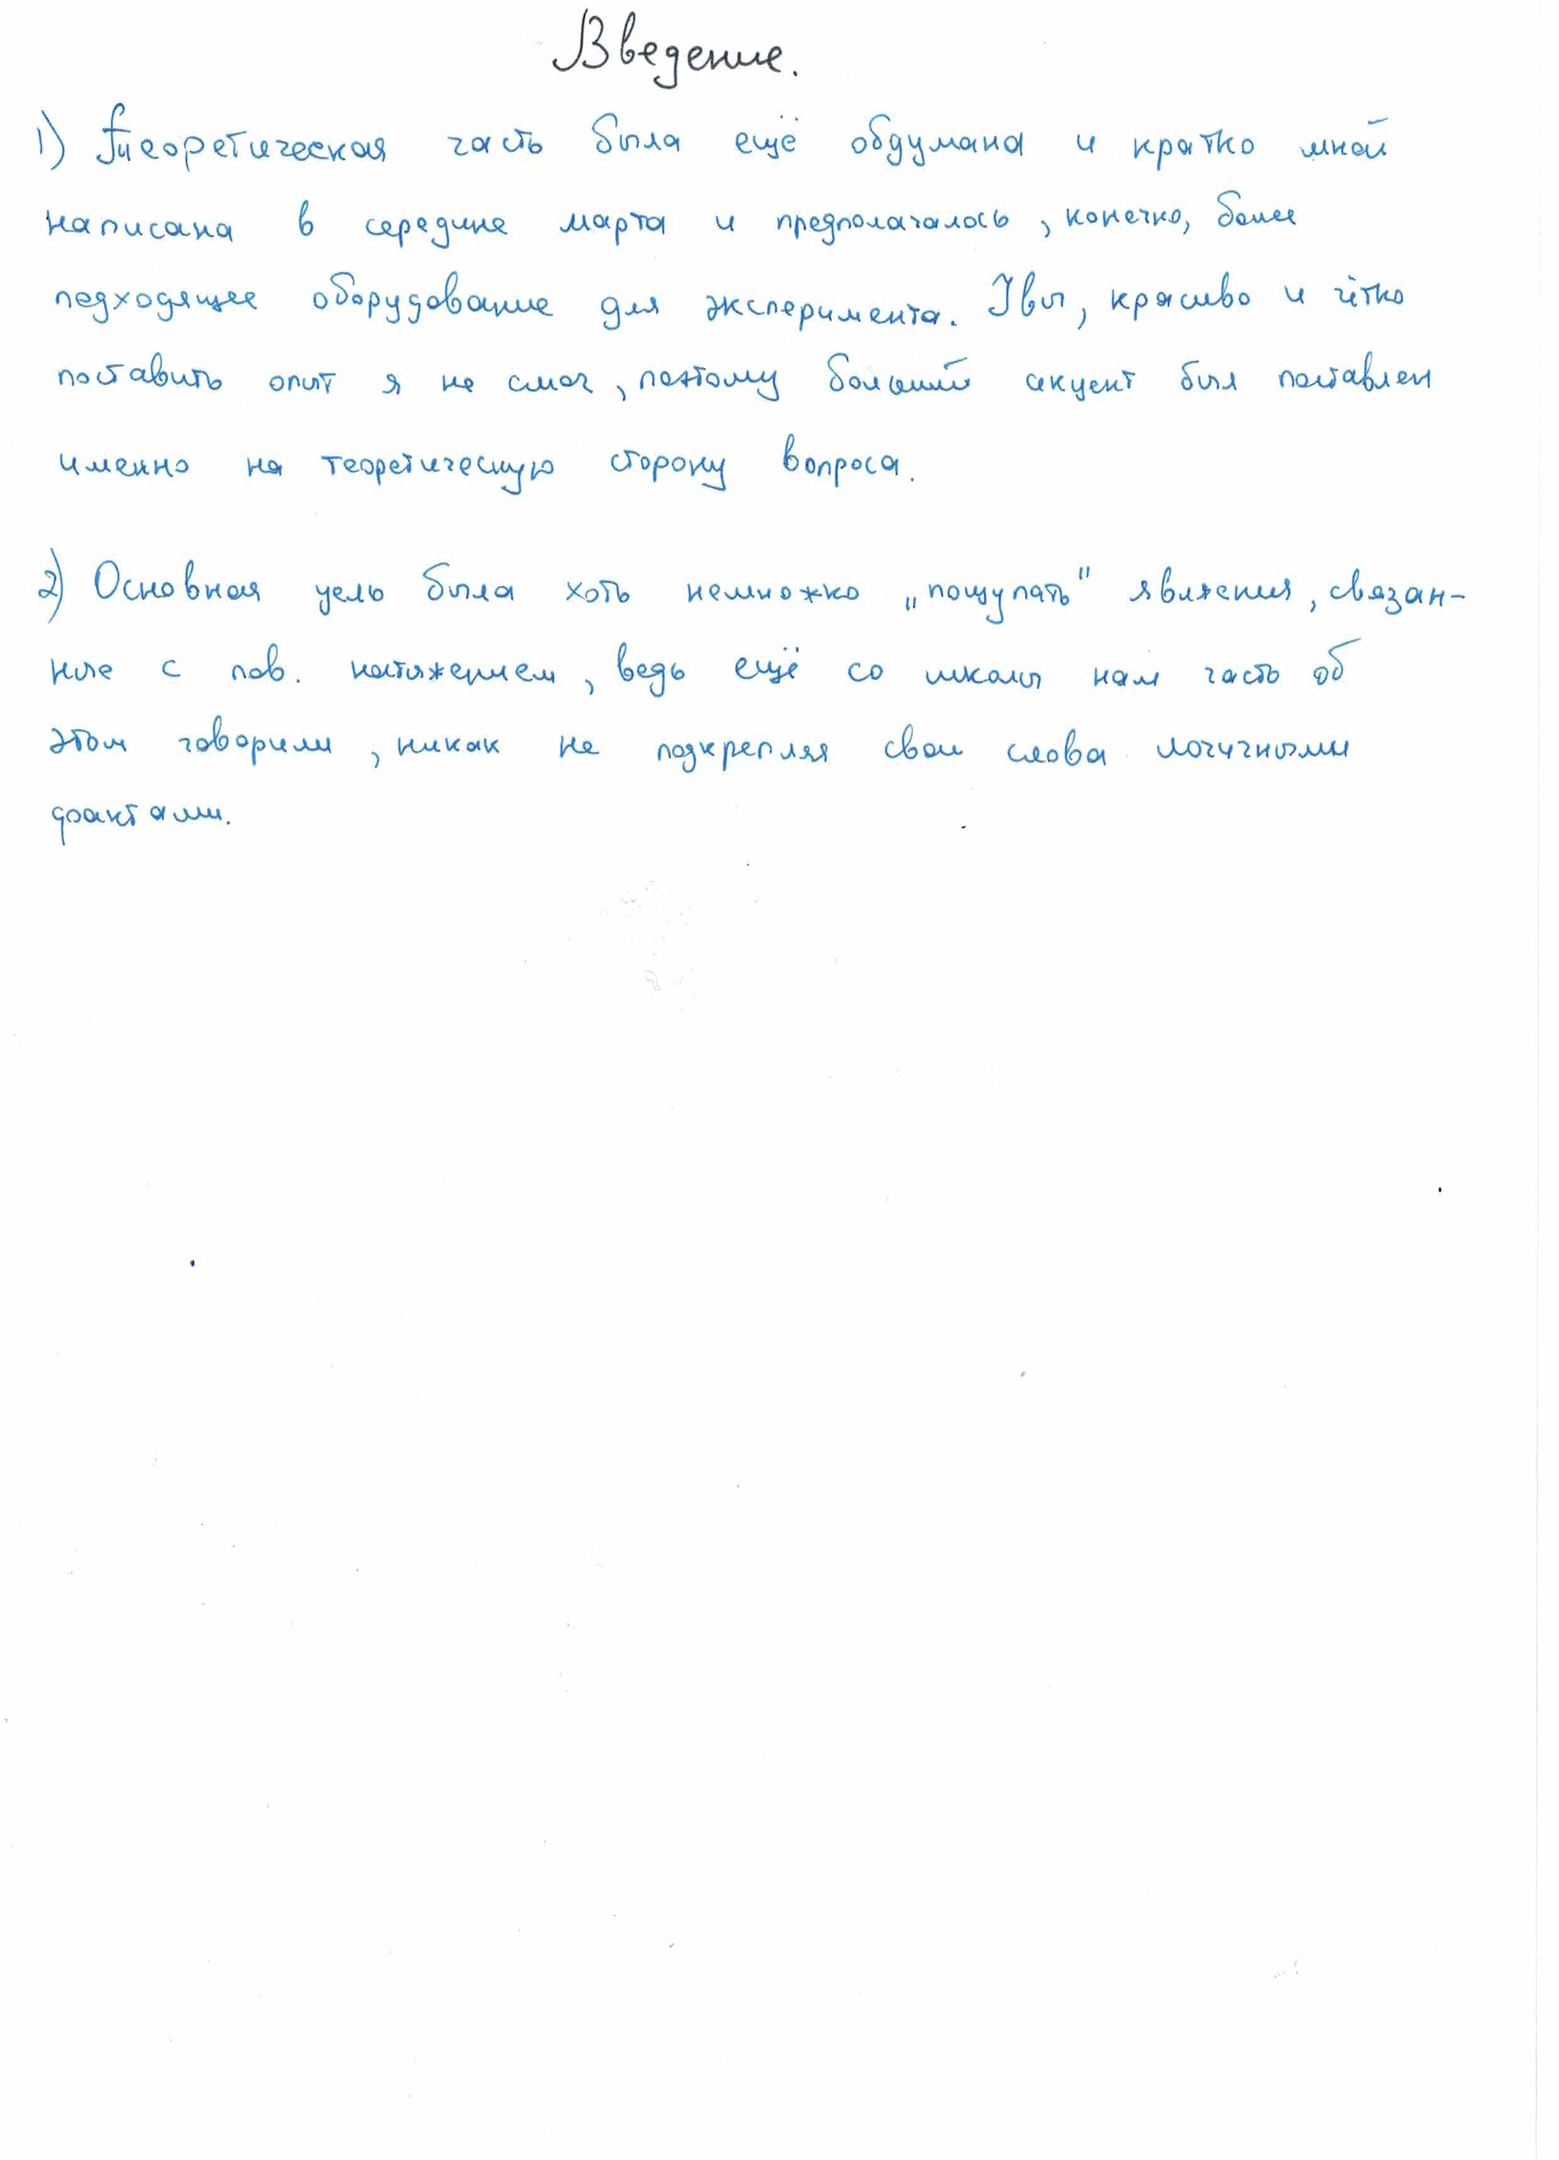 Введение.
1) Теоретическая часть была ещё обдумана и кратко мной
написана в середине марта и предполагалось, конечно, более
подходящее оборудование для эксперимента. Увы, красиво и чётко
поставить опыт я не смог, поэтому больший акцент был поставлен
именно на теоретическую сторону вопроса.
2) Основная цель была хоть немножко „пощупать" явления, связан-
ные с пов. натяжением, ведь ещё со школы нам часто об
этом говорили, никак не подкрепляя свои слова логичными
фактами.